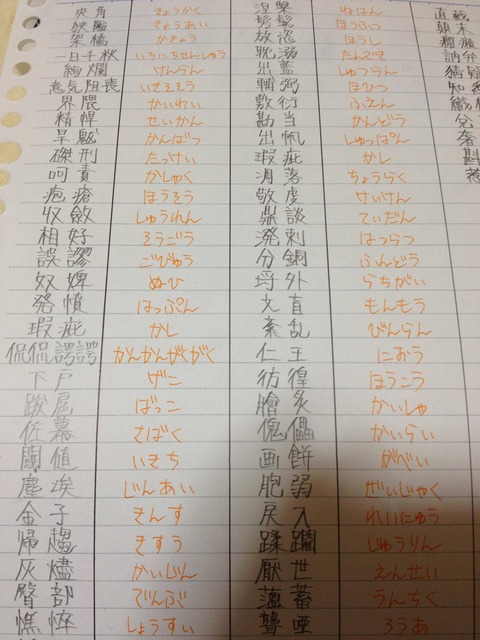 夾角 きょうかく
狭隘 きょうあい
架橋 かきょう
一日千秋 いちにちせんしゅう
絢爛 けんらん
意気阻喪 いきそそう
界隈 かいわい
精悍 せいかん
旱魃 かんばつ
磔刑 たっけい
呵責 かしゃく
疱瘡 ほうそう
収斂 しゅうれん
相好 そうごう
誤謬 ごびゅう
奴婢 ぬひ
発憤 はっぷん
瑕疵 かし
侃侃諤諤 かんかんがくがく
下戸 げこ
跋扈 ばっこ
佐幕 さばく
閾値 いきち
塵埃 じんあい
金子 きんす
帰趨 きすう
灰燼 かいじん
臀部 でんぶ
憔悴 しょうすい
涅槃 ねはん
髣髴 ほうふつ
放恣 ほうし
耽溺 たんでき
出藍 しゅつらん
輔弼 ほひつ
敷衍 ふえん
勘当 かんどう
出帆 しゅっぱん
瑕疵 かし
凋落 ちょうらく
敬虔 けいけん
鼎談 ていだん
溌剌 はつらつ
分銅 ふんどう
埒外 らちがい
文盲 もんもう
紊乱 びんらん
仁王 におう
彷徨 ほうこう
膾炙 かいしゃ
傀儡 かいらい
画餅 がべい
脆弱 ぜいじゃく
戻入 れいにゅう
蹂躙 じゅうりん
厭世 えんせい
薀蓄 うんちく
聾唖 ろうあ
顛末